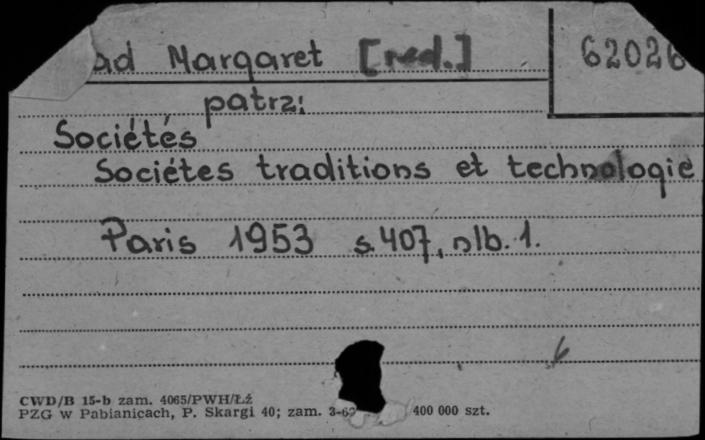 ad Margaret [red.]
62026
patrz:
Sociétés
Sociétes traditions et technologie
Paris 1953 s.407, nlb. 1.
6
CWD/B 15-b zam. 4065/PWH/Łź
PZG w Pabianicach, P. Skargi 40; zam. 3-6 400 000 szt.